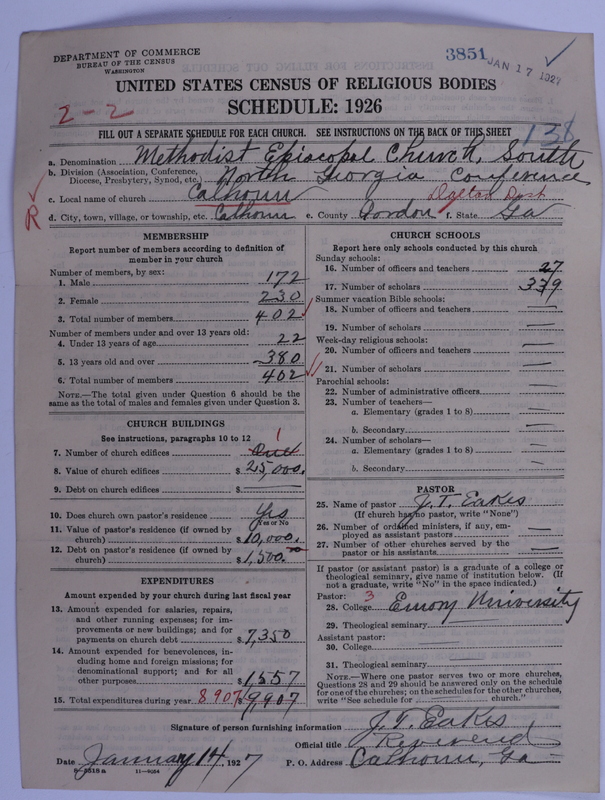 DEPARTMENT OF COMMERCE
BUREAU OF THE CENSUS
WASHINGTON
3851 JAN 17 1927
UNITED STATES CENSUS OF RELIGIOUS BODIES
SCHEDULE: 1926
2-2
FILL OUT A SEPARATE SCHEDULE FOR EACH CHURCH. SEE INSTRUCTIONS ON THE BACK OF THIS SHEET
138
a. Denomination Methodist Episcopal Church, South
b. Division (Association, Conference, Diocese, Presbytery, Synod, etc.) North Georgia Conference
c. Local name of church Calhoun Dalton Dist
R
d. City, town, village, or township, etc. Calhoun e. County Gordon f. State Ga
MEMBERSHIP
Report number of members according to definition of
member in your church
Number of members, by sex:
1. Male 172
2. Female 230
3. Total number of members 402
Number of members under and over 13 years old:
4. Under 13 years of age 22
5. 13 years old and over 380
6. Total number of members 402
NOTE.—The total given under Question 6 should be
same as the total of males and females given under Question 3.
CHURCH BUILDINGS
See instructions, paragraphs 10 to 12
7. Number of church edifices One 1
8. Value of church edifices $25,000.
9. Debt on church edifices $ —
10. Does church own pastor's residence Yes
Yes or No
11. Value of pastor's residence (if owned by
church) $10,000.
12. Debt on pastor's residence (if owned by
church) $1,500.
EXPENDITURES
Amount expended by your church during last fiscal year
13. Amount expended for salaries, repairs,
and other running expenses; for im-
provements or new buildings; and for
payments on church debt $7,350
14. Amount expended for benevolences, in-
cluding home and foreign missions; for
denominational support; and for all
other purposes $1,557
15. Total expenditures during year 8907 $9907
CHURCH SCHOOLS
Report here only schools conducted by this church
Sunday schools:
16. Number of officers and teachers 27
17. Number of scholars 339
Summer vacation Bible schools:
18. Number of officers and teachers —
19. Number of scholars —
Week-day religious schools:
20. Number of officers and teachers —
21. Number of scholars —
Parochial schools:
22. Number of administrative officers —
23. Number of teachers—
a. Elementary (grades 1 to 8) —
b. Secondary —
24. Number of scholars—
a. Elementary (grades 1 to 8) —
b. Secondary —
PASTOR
25. Name of pastor J. T. Eakes
(If church has no pastor, write "None")
26. Number of ordained ministers, if any, em-
ployed as assistant pastors —
27. Number of other churches served by the
pastor or his assistants —
If pastor (or assistant pastor) is a graduate of a college or
theological seminary, give name of institution below. (If
not a graduate, write "No" in the space indicated.)
Pastor: 3
28. College Emory University
29. Theological seminary
Assistant pastor:
30. College
31. Theological seminary
NOTE.—Where one pastor serves two or more churches,
Questions 28 and 29 should be answered only on the schedule
for one of the churches; on the schedules for the other churches,
write "See schedule for church."
Signature of person furnishing information J. T. Eakes
Official title Reverend
Date January 14, 1927 P. O. Address Calhoun, Ga
8-5518a 11-9024